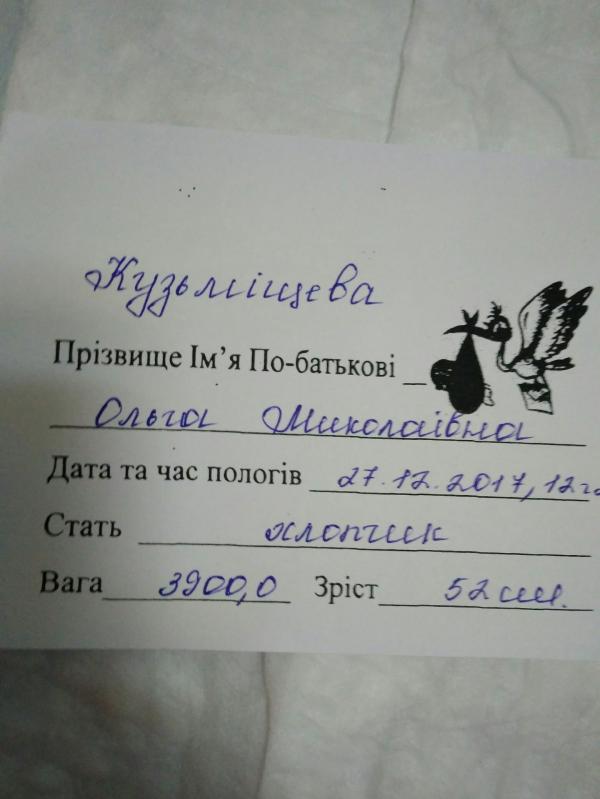 Кузьміщева
Прізвище Ім’я По-батькові
Ольга Миколаївна
Дата та час пологів 27.12.2017, 12
Стать хлопчик
Вага 3900,0 Зріст 52 см.